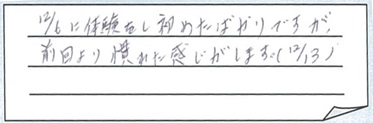 12/6に体験をし初めたばかりですが、
前回より慣れた感じがします。(12/13)